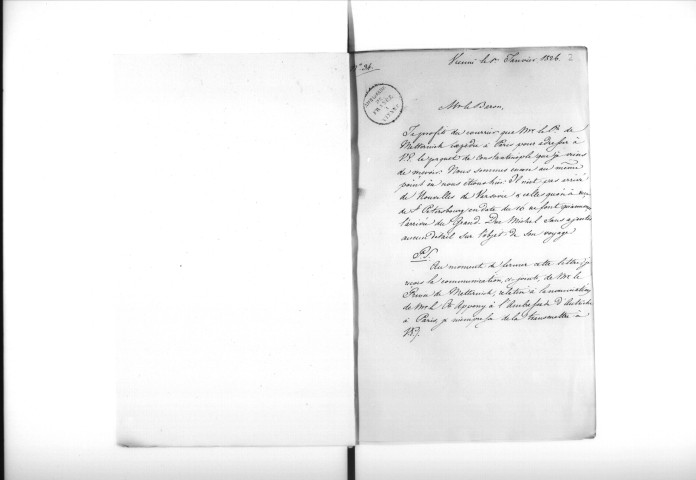 N° 34.
Vienne le 1er Janvier 1826. 2
AMBASSADE DE FRANCE À VIENNE
Mr. le Baron,
Je profite du courrier que Mr. le Pce de
Metternich expédie à Paris pour adresser à
V.E. le paquet de Constantinople que je viens
de recevoir. Nous sommes encore au même
point où nous étions hier. Il n'est pas arrivé
de Nouvelles de Varsovie & celles qu'on a reçu
de St Petersbourg en date du 16 ne font qu'annoncer
l'arrivée du Grand Duc Michel sans ajouter
aucun détail sur l'objet de son voyage
P.S.
Au moment de fermer cette lettre, je
reçois la communication, ci-jointe, de Mr. le
Prince de Metternich, relative à la nomination
de Mr. le Cte Appony à l'Ambassade d'Autriche
à Paris, je m'empresse de la transmettre à
V.E.